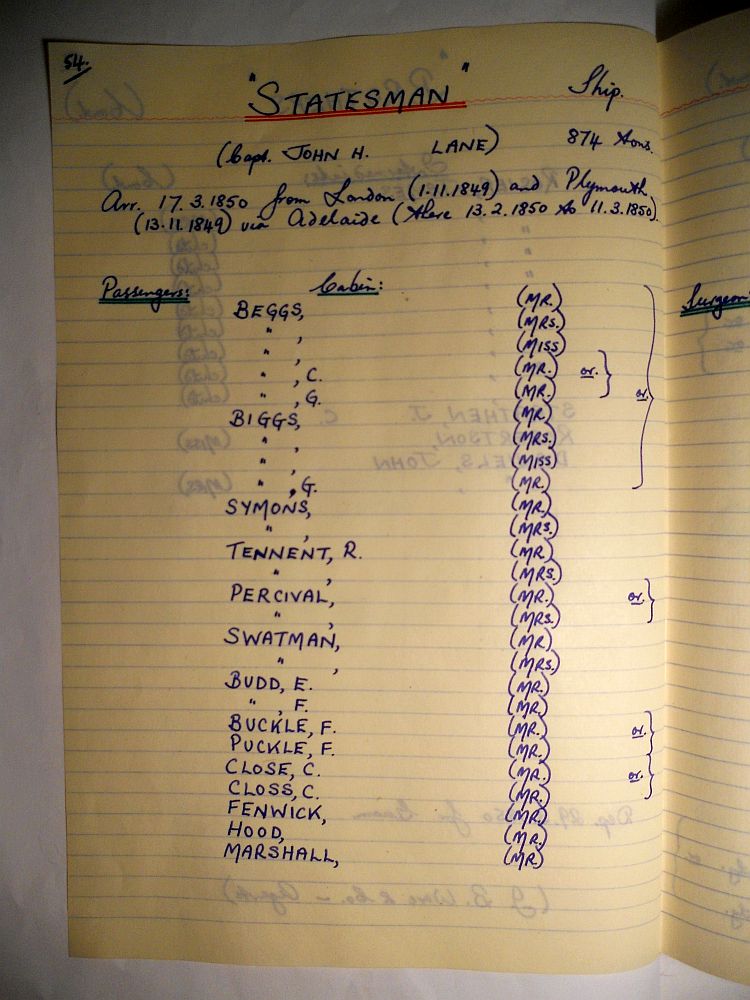 54.
"STATESMAN" Ship.
(Capt. JOHN H. LANE) 874 tons.
Arr. 17.3.1850 from London (1.11.1849) and Plymouth
(13.11.1849) via Adelaide (there 13.2.1850 to 11.3.1850).
Passengers: Cabin:
BEGGS, (MR.)
" , (MRS.)
" , (MISS)
" , C. (MR.) or.
" , G. (MR.) or.
BIGGS, (MR)
" , (MRS.)
" , (MISS)
" , G. (MR.)
SYMONS, (MR.)
" , (MRS.)
TENNENT, R. (MR.)
" , (MRS.)
PERCIVAL, (MR.) or.
" , (MRS.)
SWATMAN, (MR)
" , (MRS.)
BUDD, E. (MR.)
" , F. (MR.)
BUCKLE, F. (MR.) or.
PUCKLE, F. (MR.)
CLOSE, C. (MR.) or.
CLOSS, C. (MR.)
FENWICK, (MR.)
HOOD, (MR.)
MARSHALL, (MR)
Surgeon: